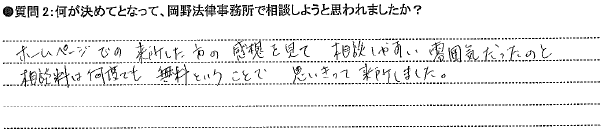 ●質問2:何が決めてとなって、岡野法律事務所で相談しようと思われましたか？
ホームページでの来所した方の感想を見て 相談しやすい雰囲気だったのと
相談料は何度でも 無料ということで 思いきって来所しました。